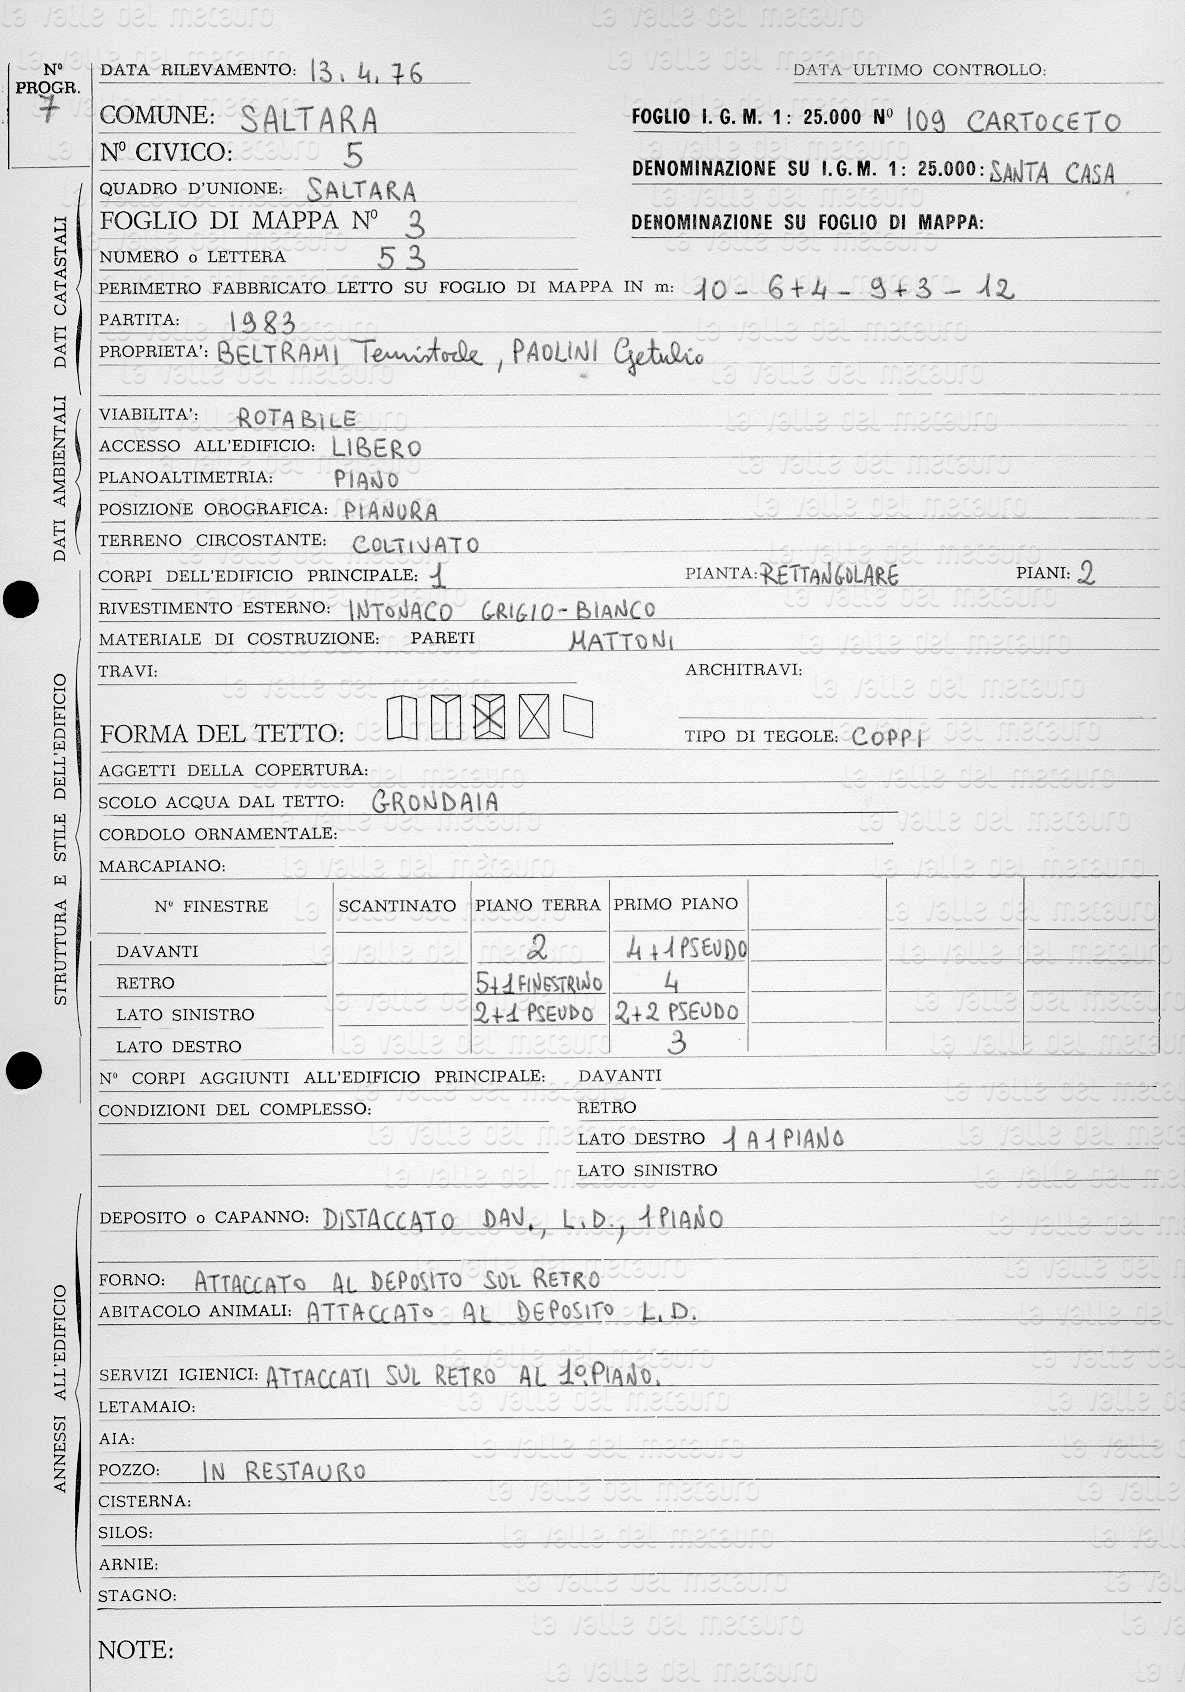 Nº PROGR. 7
DATA RILEVAMENTO: 13.4.76 DATA ULTIMO CONTROLLO:
COMUNE: SALTARA FOGLIO I.G.M. 1: 25.000 Nº 109 CARTOCETO
Nº CIVICO: 5 DENOMINAZIONE SU I.G.M. 1: 25.000: SANTA CASA
DATI CATASTALI
QUADRO D'UNIONE: SALTARA
FOGLIO DI MAPPA Nº 3 DENOMINAZIONE SU FOGLIO DI MAPPA:
NUMERO o LETTERA 53
PERIMETRO FABBRICATO LETTO SU FOGLIO DI MAPPA IN m: 10-6+4-9+3-12
PARTITA: 1983
PROPRIETA': BELTRAMI Temistocle, PAOLINI Getulio
DATI AMBIENTALI
VIABILITA': ROTABILE
ACCESSO ALL'EDIFICIO: LIBERO
PLANOALTIMETRIA: PIANO
POSIZIONE OROGRAFICA: PIANURA
TERRENO CIRCOSTANTE: COLTIVATO
STRUTTURA E STILE DELL'EDIFICIO
CORPI DELL'EDIFICIO PRINCIPALE: 1 PIANTA: RETTANGOLARE PIANI: 2
RIVESTIMENTO ESTERNO: INTONACO GRIGIO-BIANCO
MATERIALE DI COSTRUZIONE: PARETI MATTONI
TRAVI: ARCHITRAVI:
FORMA DEL TETTO: TIPO DI TEGOLE: COPPI
AGGETTI DELLA COPERTURA:
SCOLO ACQUA DAL TETTO: GRONDAIA
CORDOLO ORNAMENTALE:
MARCAPIANO:
Nº FINESTRE SCANTINATO PIANO TERRA PRIMO PIANO
DAVANTI 2 4+1 PSEUDO
RETRO 5+1 FINESTRINO 4
LATO SINISTRO 2+1 PSEUDO 2+2 PSEUDO
LATO DESTRO 3
Nº CORPI AGGIUNTI ALL'EDIFICIO PRINCIPALE: DAVANTI
CONDIZIONI DEL COMPLESSO: RETRO
LATO DESTRO 1 A 1 PIANO
LATO SINISTRO
ANNESSI ALL'EDIFICIO
DEPOSITO o CAPANNO: DISTACCATO DAV., L.D., 1 PIANO
FORNO: ATTACCATO AL DEPOSITO SUL RETRO
ABITACOLO ANIMALI: ATTACCATO AL DEPOSITO L.D.
SERVIZI IGIENICI: ATTACCATI SUL RETRO AL 1º PIANO.
LETAMAIO:
AIA:
POZZO: IN RESTAURO
CISTERNA:
SILOS:
ARNIE:
STAGNO:
NOTE:
la valle del metauro